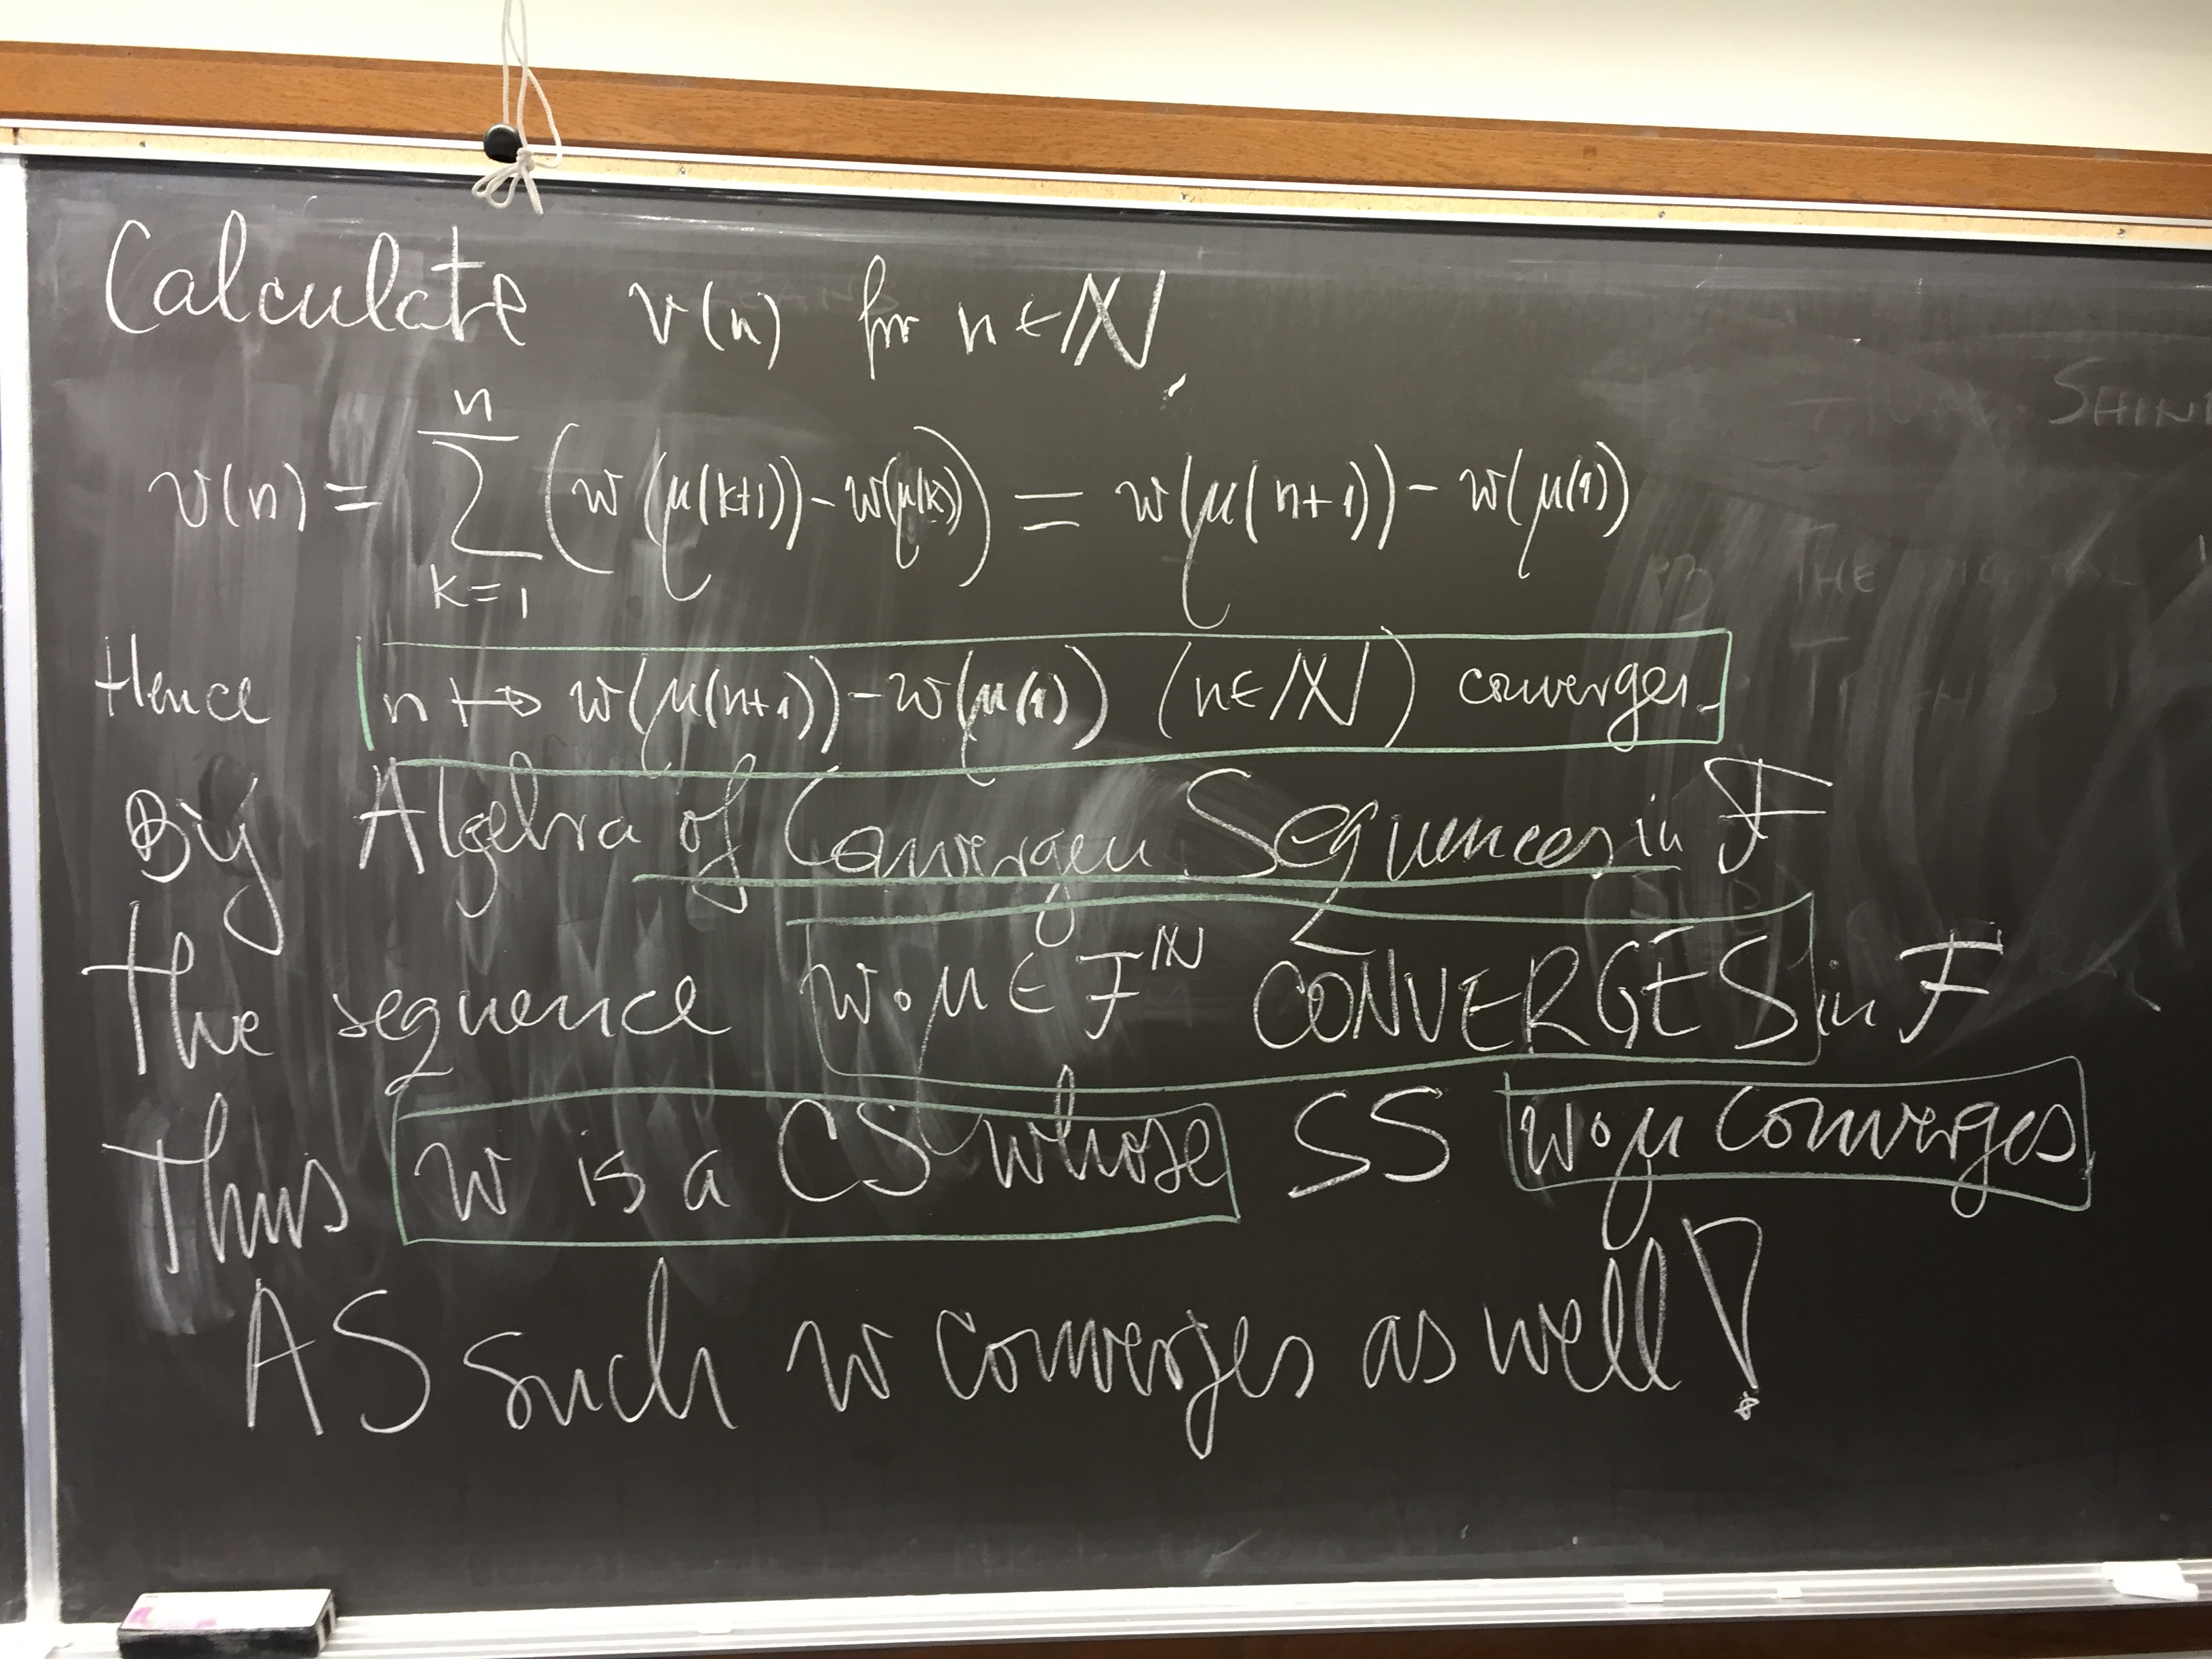 Calculate v(n) for n ∈ ℕ.
v(n) = ∑_{k=1}^{n} (w(μ(k+1)) - w(μ(k))) = w(μ(n+1)) - w(μ(1))
Hence n ↦ w(μ(n+1)) - w(μ(1)) (n ∈ ℕ) converges.
By Algebra of Convergen Sequences in F
The sequence w∘μ ∈ F^ℕ CONVERGES in F
Thus w is a CS whose SS w∘μ converges
AS such w converges as well!
SHIN
THE